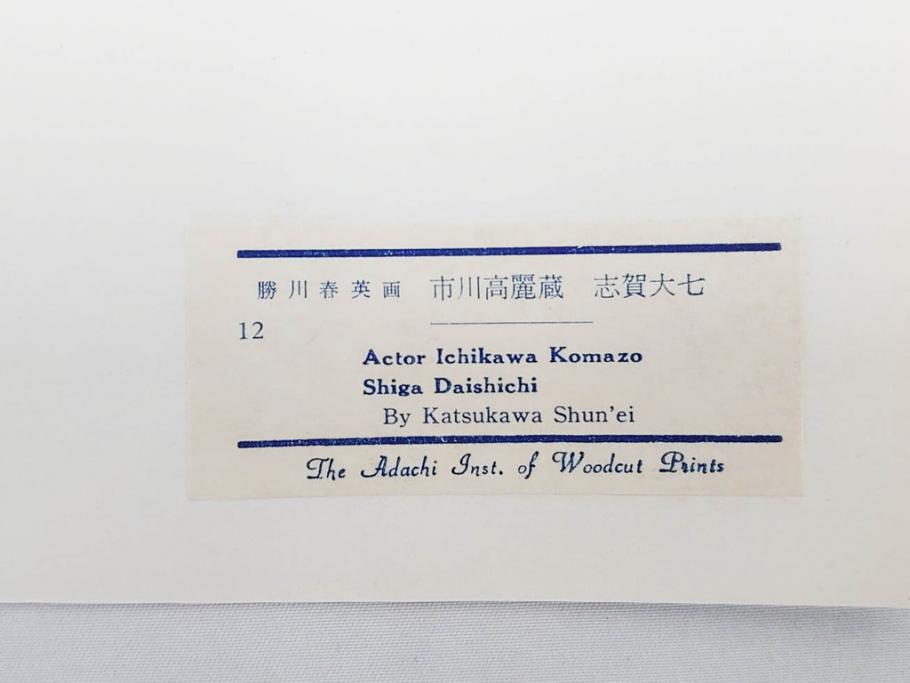 勝川春英画 市川高麗蔵 志賀大七
12
Actor Ichikawa Komazo
Shiga Daishichi
By Katsukawa Shun'ei
The Adachi Inst. of Woodcut Prints